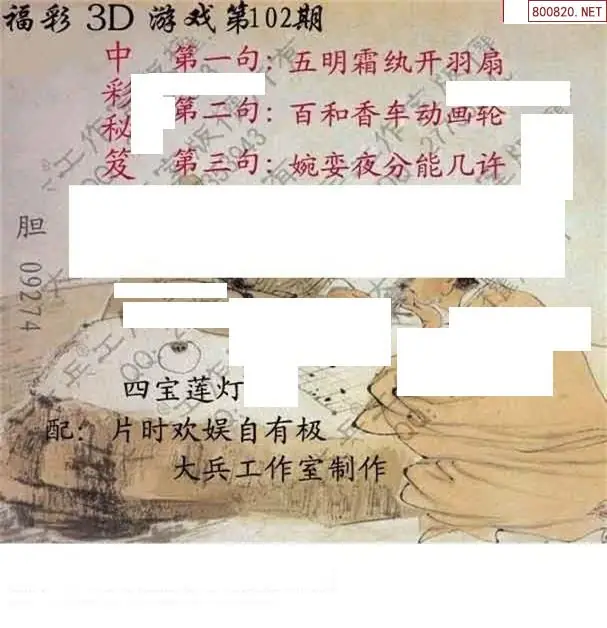 福彩3D游戏第102期
800820.NET
中彩秘笈
第一句：五明霜纨开羽扇
第二句：百和香车动画轮
第三句：婉娈夜分能几许
胆 09274
四宝莲灯
配：片时欢娱自有极
大兵工作室制作